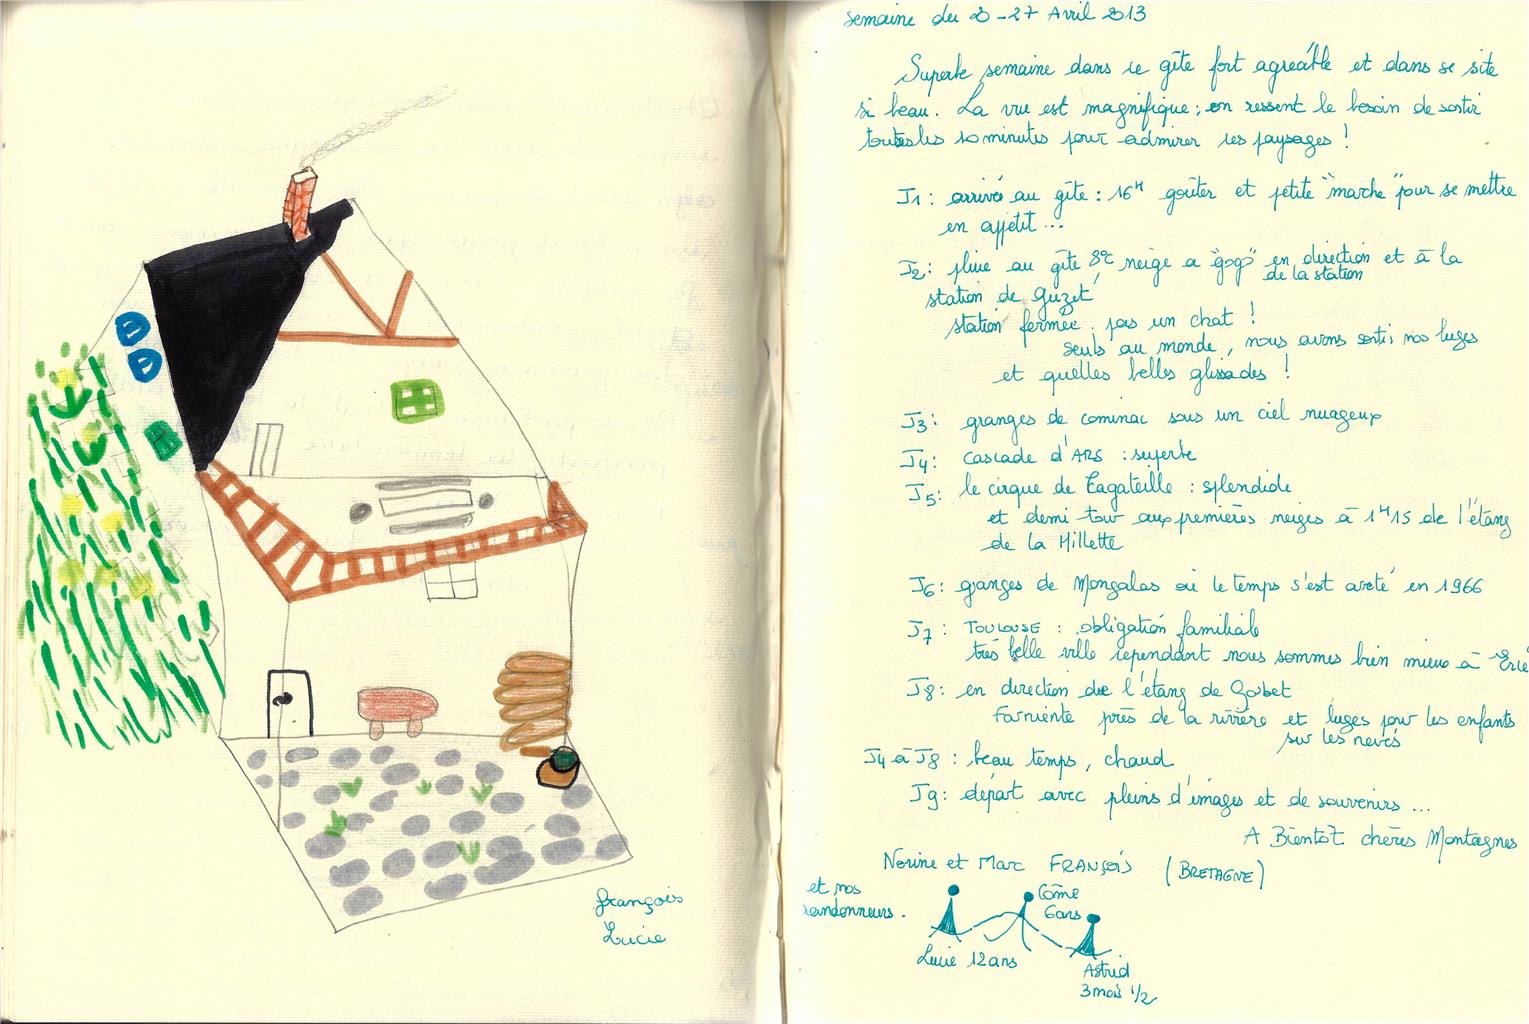 françois
Lucie
semaine du 20-27 Avril 2013
Superbe semaine dans ce gîte fort agréable et dans se site
si beau. La vue est magnifique ; on ressent le besoin de sortir
toutes les 10 minutes pour admirer ces paysages !
J1 : arrivée au gîte : 16H goûter et petite "marche" pour se mettre
en appétit ...
J2 : pluie au gîte 8°C, neige a "gogo" en direction et à la
de la station
station de Guzet
station fermée, pas un chat !
seuls au monde, nous avons sorti nos luges
et quelles belles glissades !
J3 : granges de cominac sous un ciel nuageux
J4 : cascade d'ARS : superbe
J5 : le cirque de Cagateille : splendide
et demi tour aux premières neiges à 1H15 de l'étang
de la Hillette
J6 : granges de Mongalas où le temps s'est areté en 1966
J7 : TOULOUSE : obligation familiale
très belle ville cependant nous sommes bien mieux à
J8 : en direction de l'étang de Goubet
Farniente près de la rivière et luges pour les enfants
sur les nevés
J4 à J8 : beau temps, chaud
J9 : départ avec pleins d'images et de souvenirs ...
A Bientôt chères Montagnes
Norine et Marc FRANÇOIS (BRETAGNE)
et nos
randonneurs.
Côme
6ans
Lucie 12ans
Astrid
3 mois 1/2